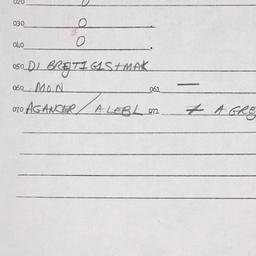 020 0
030 0
040 0
050 DI BRETIGIS+MAK
060 MON 061 —
070 AGANCER / ALEBL 071 ≠ A GRE